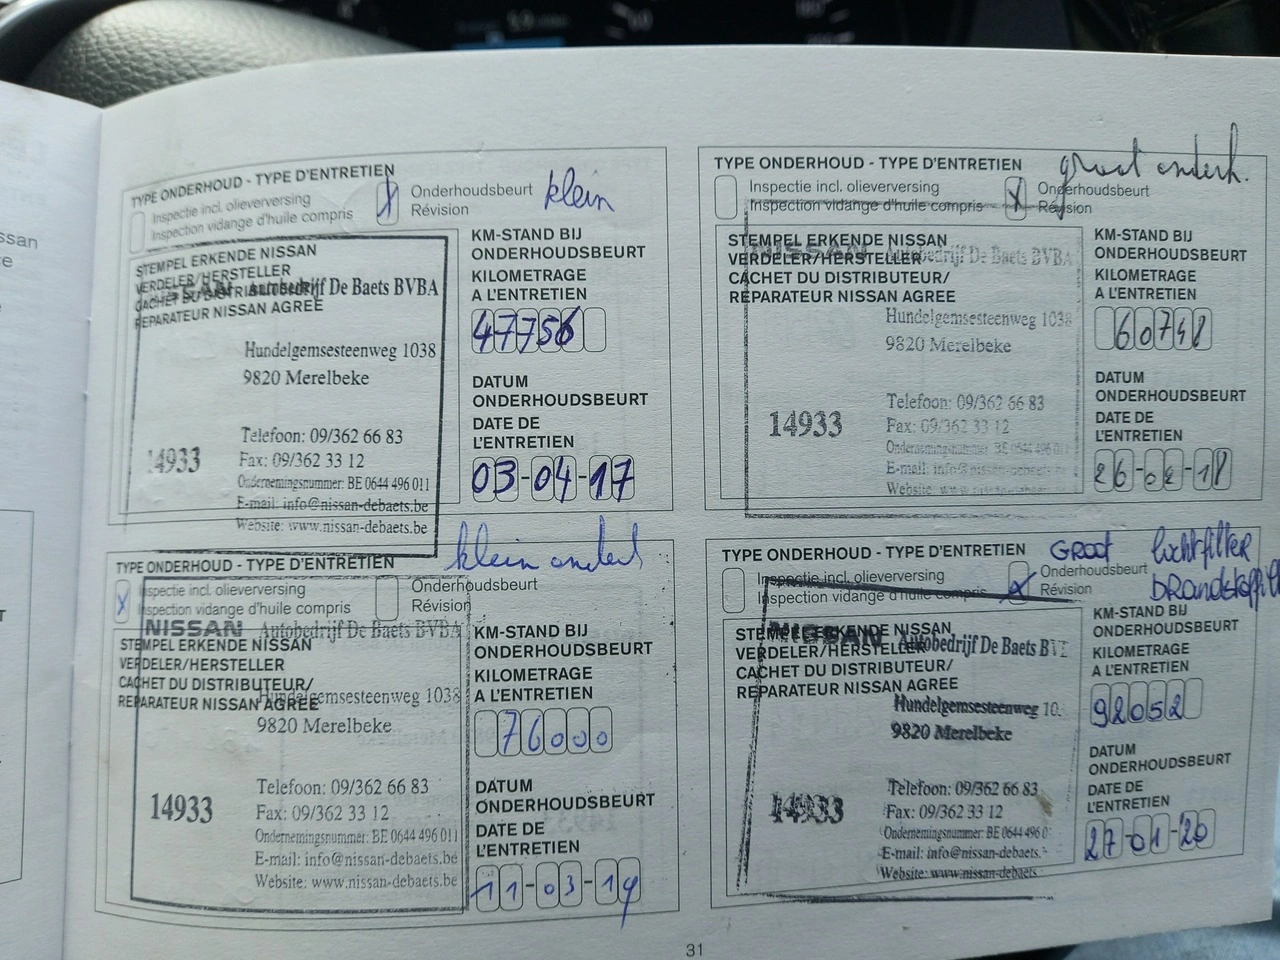 TYPE ONDERHOUD - TYPE D'ENTRETIEN
Inspectie incl. olieverversing
Inspection vidange d'huile compris
X
Onderhoudsbeurt
Révision
klein
STEMPEL ERKENDE NISSAN
VERDELER/HERSTELLER
CACHET DU DISTRIBUTEUR/
REPARATEUR NISSAN AGREE
Autobedrijf De Baets BVBA
Hundelgemsesteenweg 1038
9820 Merelbeke
14933
Telefoon: 09/362 66 83
Fax: 09/362 33 12
Ondernemingsnummer: BE 0644 496 011
E-mail: info@nissan-debaets.be
Website: www.nissan-debaets.be
KM-STAND BIJ
ONDERHOUDSBEURT
KILOMETRAGE
A L'ENTRETIEN
47756
DATUM
ONDERHOUDSBEURT
DATE DE
L'ENTRETIEN
03-04-17
TYPE ONDERHOUD - TYPE D'ENTRETIEN
groot onderh.
Inspectie incl. olieverversing
Inspection vidange d'huile compris
X
Onderhoudsbeurt
Révision
STEMPEL ERKENDE NISSAN
VERDELER/HERSTELLER
CACHET DU DISTRIBUTEUR/
REPARATEUR NISSAN AGREE
NISSAN Autobedrijf De Baets BVBA
Hundelgemsesteenweg 1038
9820 Merelbeke
14933
Telefoon: 09/362 66 83
Fax: 09/362 33 12
Ondernemingsnummer: BE 0644 496 011
E-mail: info@nissan-debaets
Website: www.nissan-debaets
KM-STAND BIJ
ONDERHOUDSBEURT
KILOMETRAGE
A L'ENTRETIEN
60748
DATUM
ONDERHOUDSBEURT
DATE DE
L'ENTRETIEN
26-02-18
TYPE ONDERHOUD - TYPE D'ENTRETIEN
klein onderh
X
Inspectie incl. olieverversing
Inspection vidange d'huile compris
Onderhoudsbeurt
Révision
STEMPEL ERKENDE NISSAN
VERDELER/HERSTELLER
CACHET DU DISTRIBUTEUR/
REPARATEUR NISSAN AGREE
NISSAN Autobedrijf De Baets BVBA
Hundelgemsesteenweg 1038
9820 Merelbeke
14933
Telefoon: 09/362 66 83
Fax: 09/362 33 12
Ondernemingsnummer: BE 0644 496 011
E-mail: info@nissan-debaets.be
Website: www.nissan-debaets.be
KM-STAND BIJ
ONDERHOUDSBEURT
KILOMETRAGE
A L'ENTRETIEN
76000
DATUM
ONDERHOUDSBEURT
DATE DE
L'ENTRETIEN
11-03-19
TYPE ONDERHOUD - TYPE D'ENTRETIEN
GROOT luchtfilter
Inspectie incl. olieverversing
Inspection vidange d'huile compris
X
Onderhoudsbeurt
Révision
STEMPEL ERKENDE NISSAN
VERDELER/HERSTELLER
CACHET DU DISTRIBUTEUR/
REPARATEUR NISSAN AGREE
NISSAN Autobedrijf De Baets
Hundelgemsesteenweg
9820 Merelbeke
14933
Telefoon: 09/362 66 83
Fax: 09/362 33 12
Ondernemingsnummer: BE 0644 496
E-mail: info@nissan-debaets.
Website: www.nissan-debaets
KM-STAND BIJ
ONDERHOUDSBEURT
KILOMETRAGE
A L'ENTRETIEN
92052
DATUM
ONDERHOUDSBEURT
DATE DE
L'ENTRETIEN
27-01-20
31